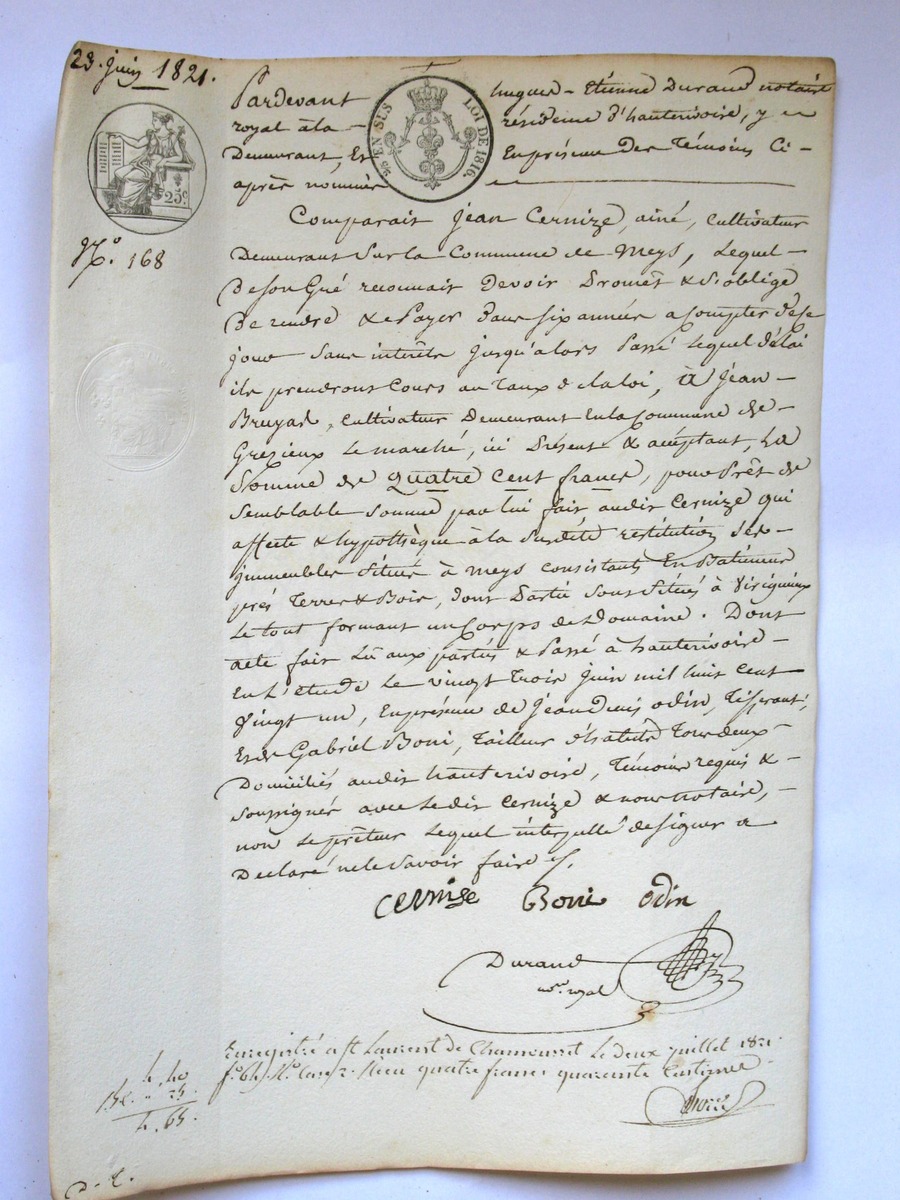 23. juin 1821.
Pardevant hugues - Etienne Durand notaire
royal à la - résidence d'hauterivoire, y en
Demeurant, Et En présence Des Témoins Ci -
après nommés
EN SUS
LOI DE 1816.
25c.
N.o 168
Comparait Jean Cernize, ainé, cultivateur
Demeurant Sur la Commune de Meys, Lequel -
De son Gré reconnait Devoir Promet & S'oblige
De rendre & Payer Dans six année a Compter de ce
jour Sans interêts jusqu'alors Passé Lequel délai
ils prendrons Cours au Taux de la loi, à Jean -
Bruyas, Cultivateur Demeurant En la Commune de -
Grezieux Le marché, ici Présent & acceptant, La
Somme de Quatre Cent francs, pour Prêt de
Semblable Somme par lui fait audit Cernize qui
affecte & hypothèque à la Sureté restitution Ses -
jmmeubles Situés à Meys Consistants En Batiments
prés Terres & Bois, dont Partie Sont Situés à Virigneux
Le tout formant un Corps de Domaine. Dont
acte fait Lû aux parties & Passé à hauterivoire -
En L'étude Le vingt trois juin mil huit cent
Vingt un, En présence de Jean Denis odin, Tisserant,
Et de Gabriel Boni, Tailleur d'habits Tous deux -
Domiciliés audit hauterivoire, Témoins requis & -
Soussignés avec Ledit Cernize & nous Notaire, -
non Le prêteur Lequel interpellé de signer a
Déclaré ne le Savoir faire
Cernize Boni odin
Durand
nore. royal
Enregistré a St Laurent de Chamousset Le deux juillet 1821.
quatre francs quarante Centimes
4. 40
4. 65.
D. L.